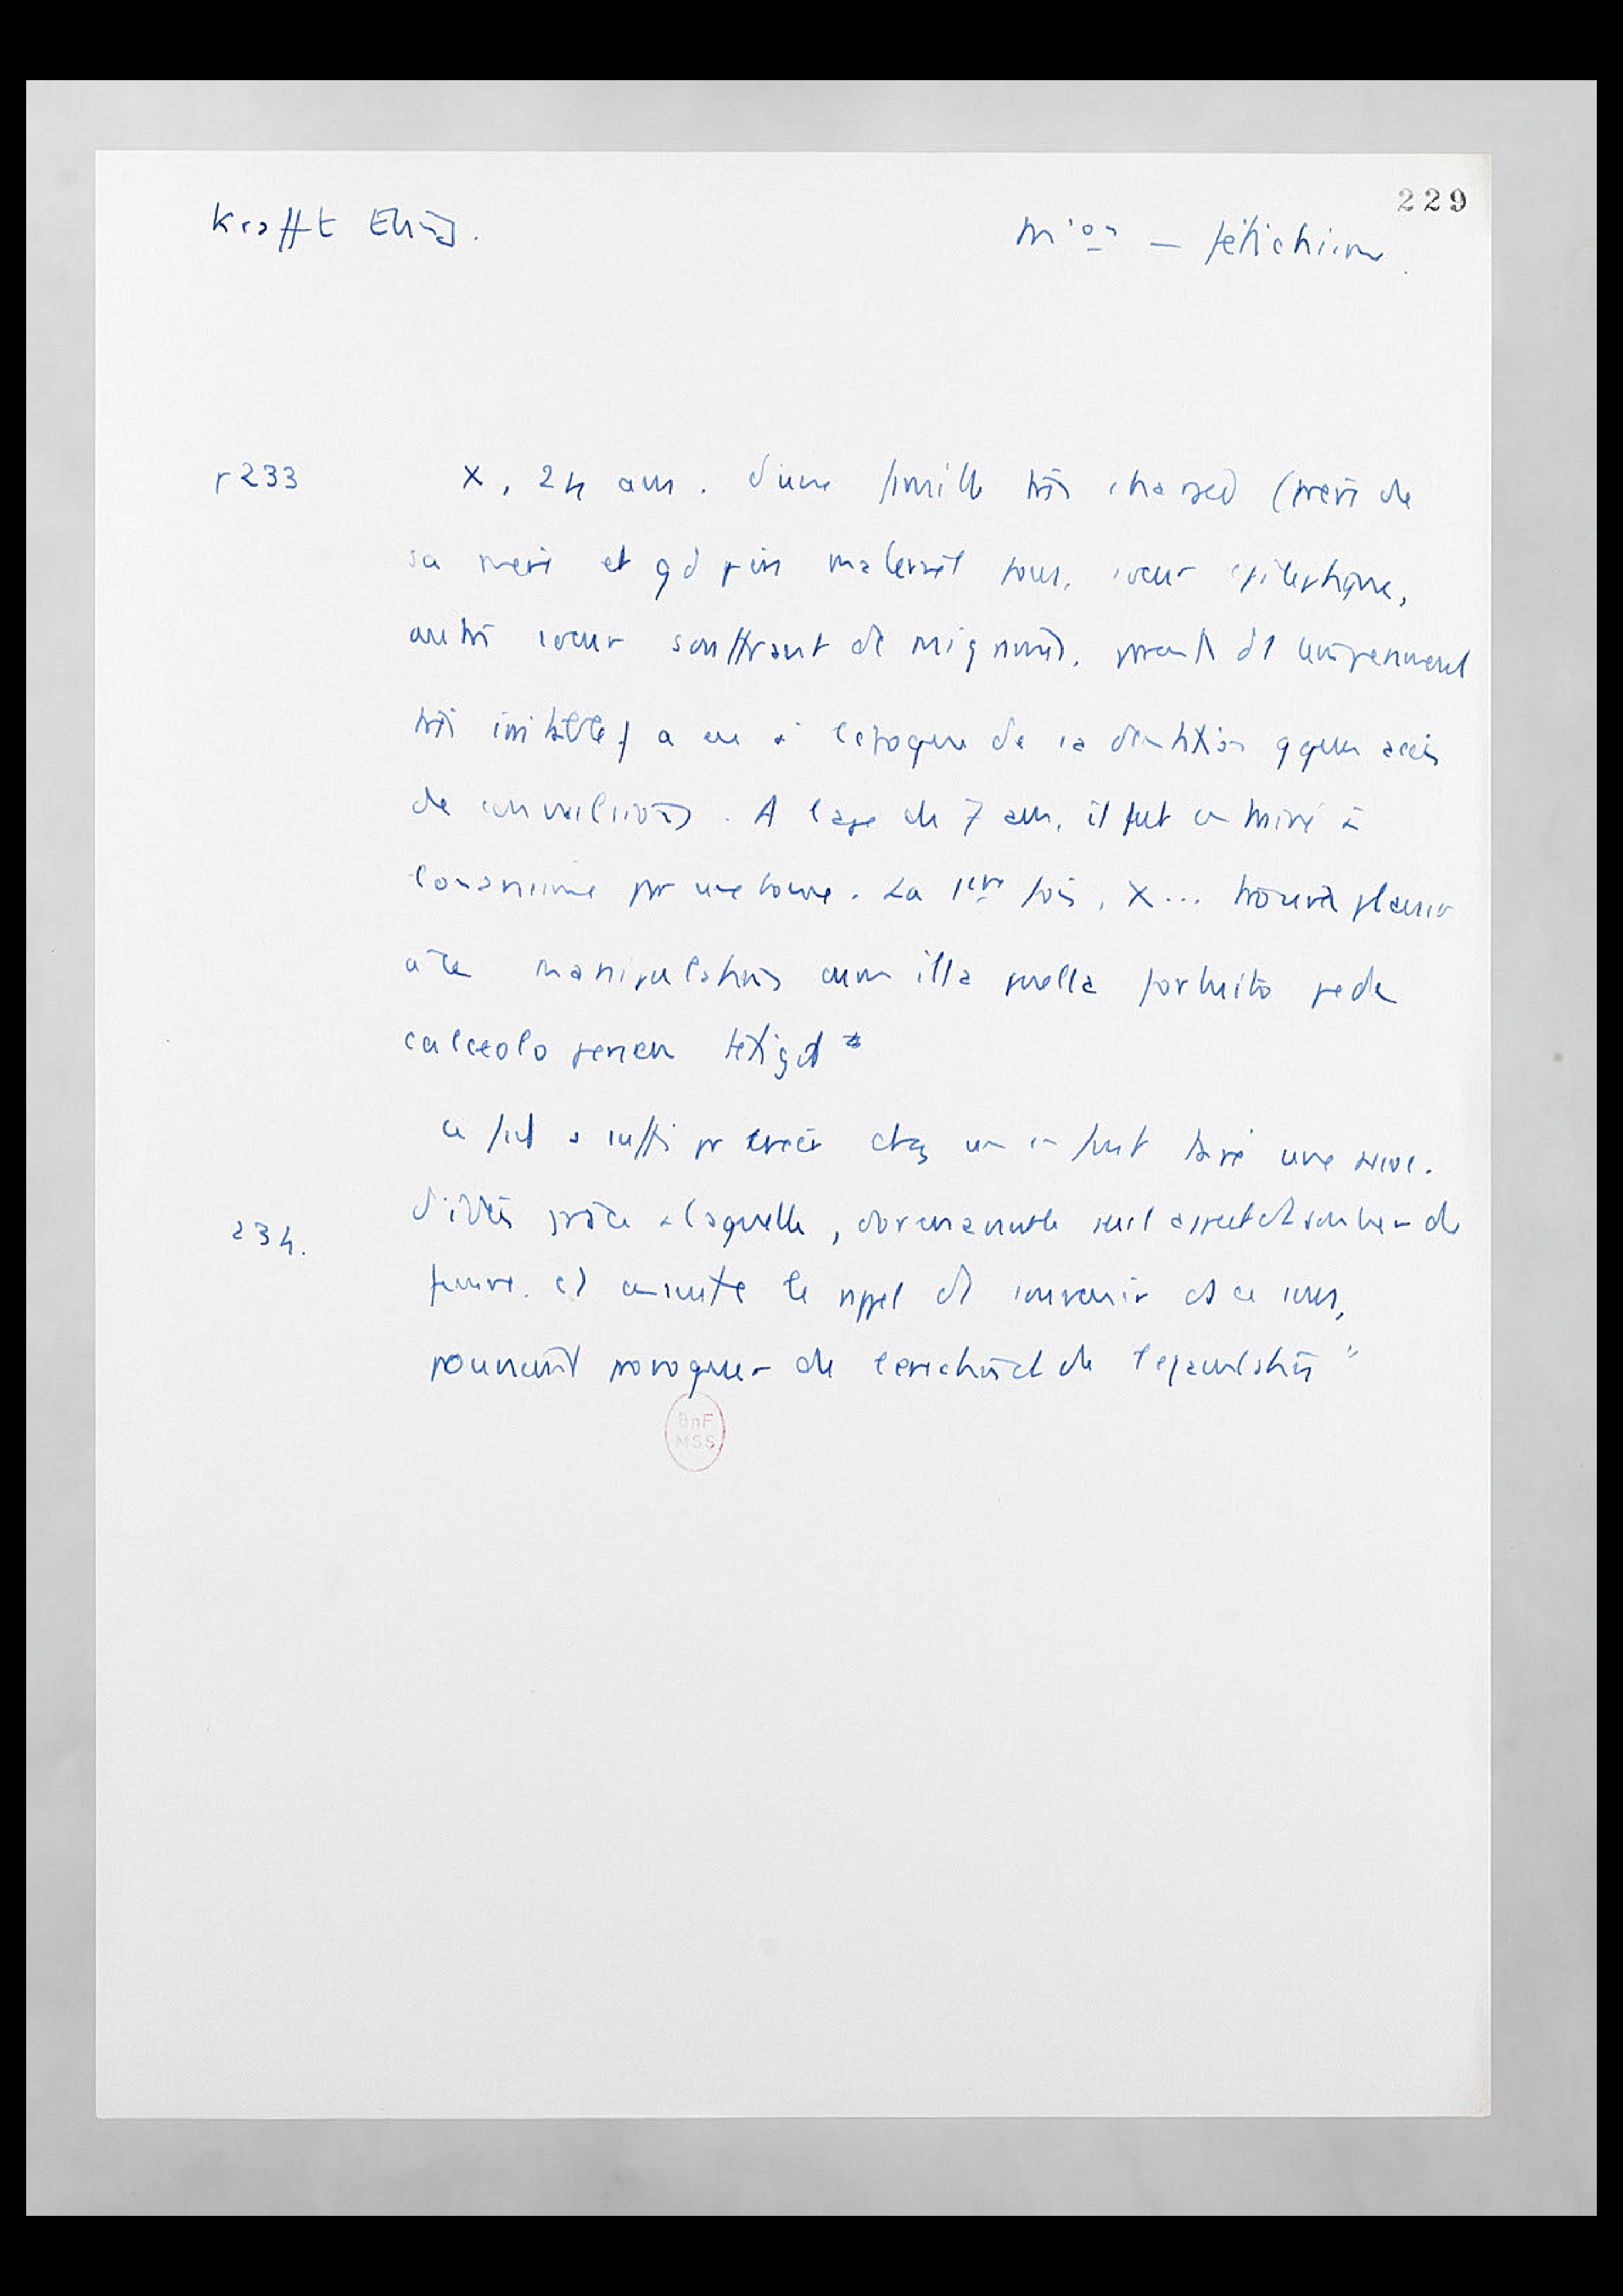 229
Krafft Ebing.
fétichisme.
p 233 X, 24 ans. d'une famille très chargée (frère de
sa mère et gd père maternel fous, soeur épileptique,
autre soeur souffrant de migraines, parents d'1 tempérament
très irritable) a eu à l'époque de sa dentition qques accès
de convulsions. A l'age de 7 ans, il fut entrainé à
l'onanisme par une bonne. La 1ère fois, X... trouva plaisir
à ces manipulations cum illa puella fortuito pede
calceolo penem tetigit"
Ce fait a suffi pr créer chez un enfant taré une assoc.
234. d'idées grâce à laquelle, dorénavant le seul aspect d'1 soulier de
femme et ensuite le rappel d'1 souvenir de ce sens,
pouvaient provoquer de l'erection et de l'ejaculation"
BnF
MSS